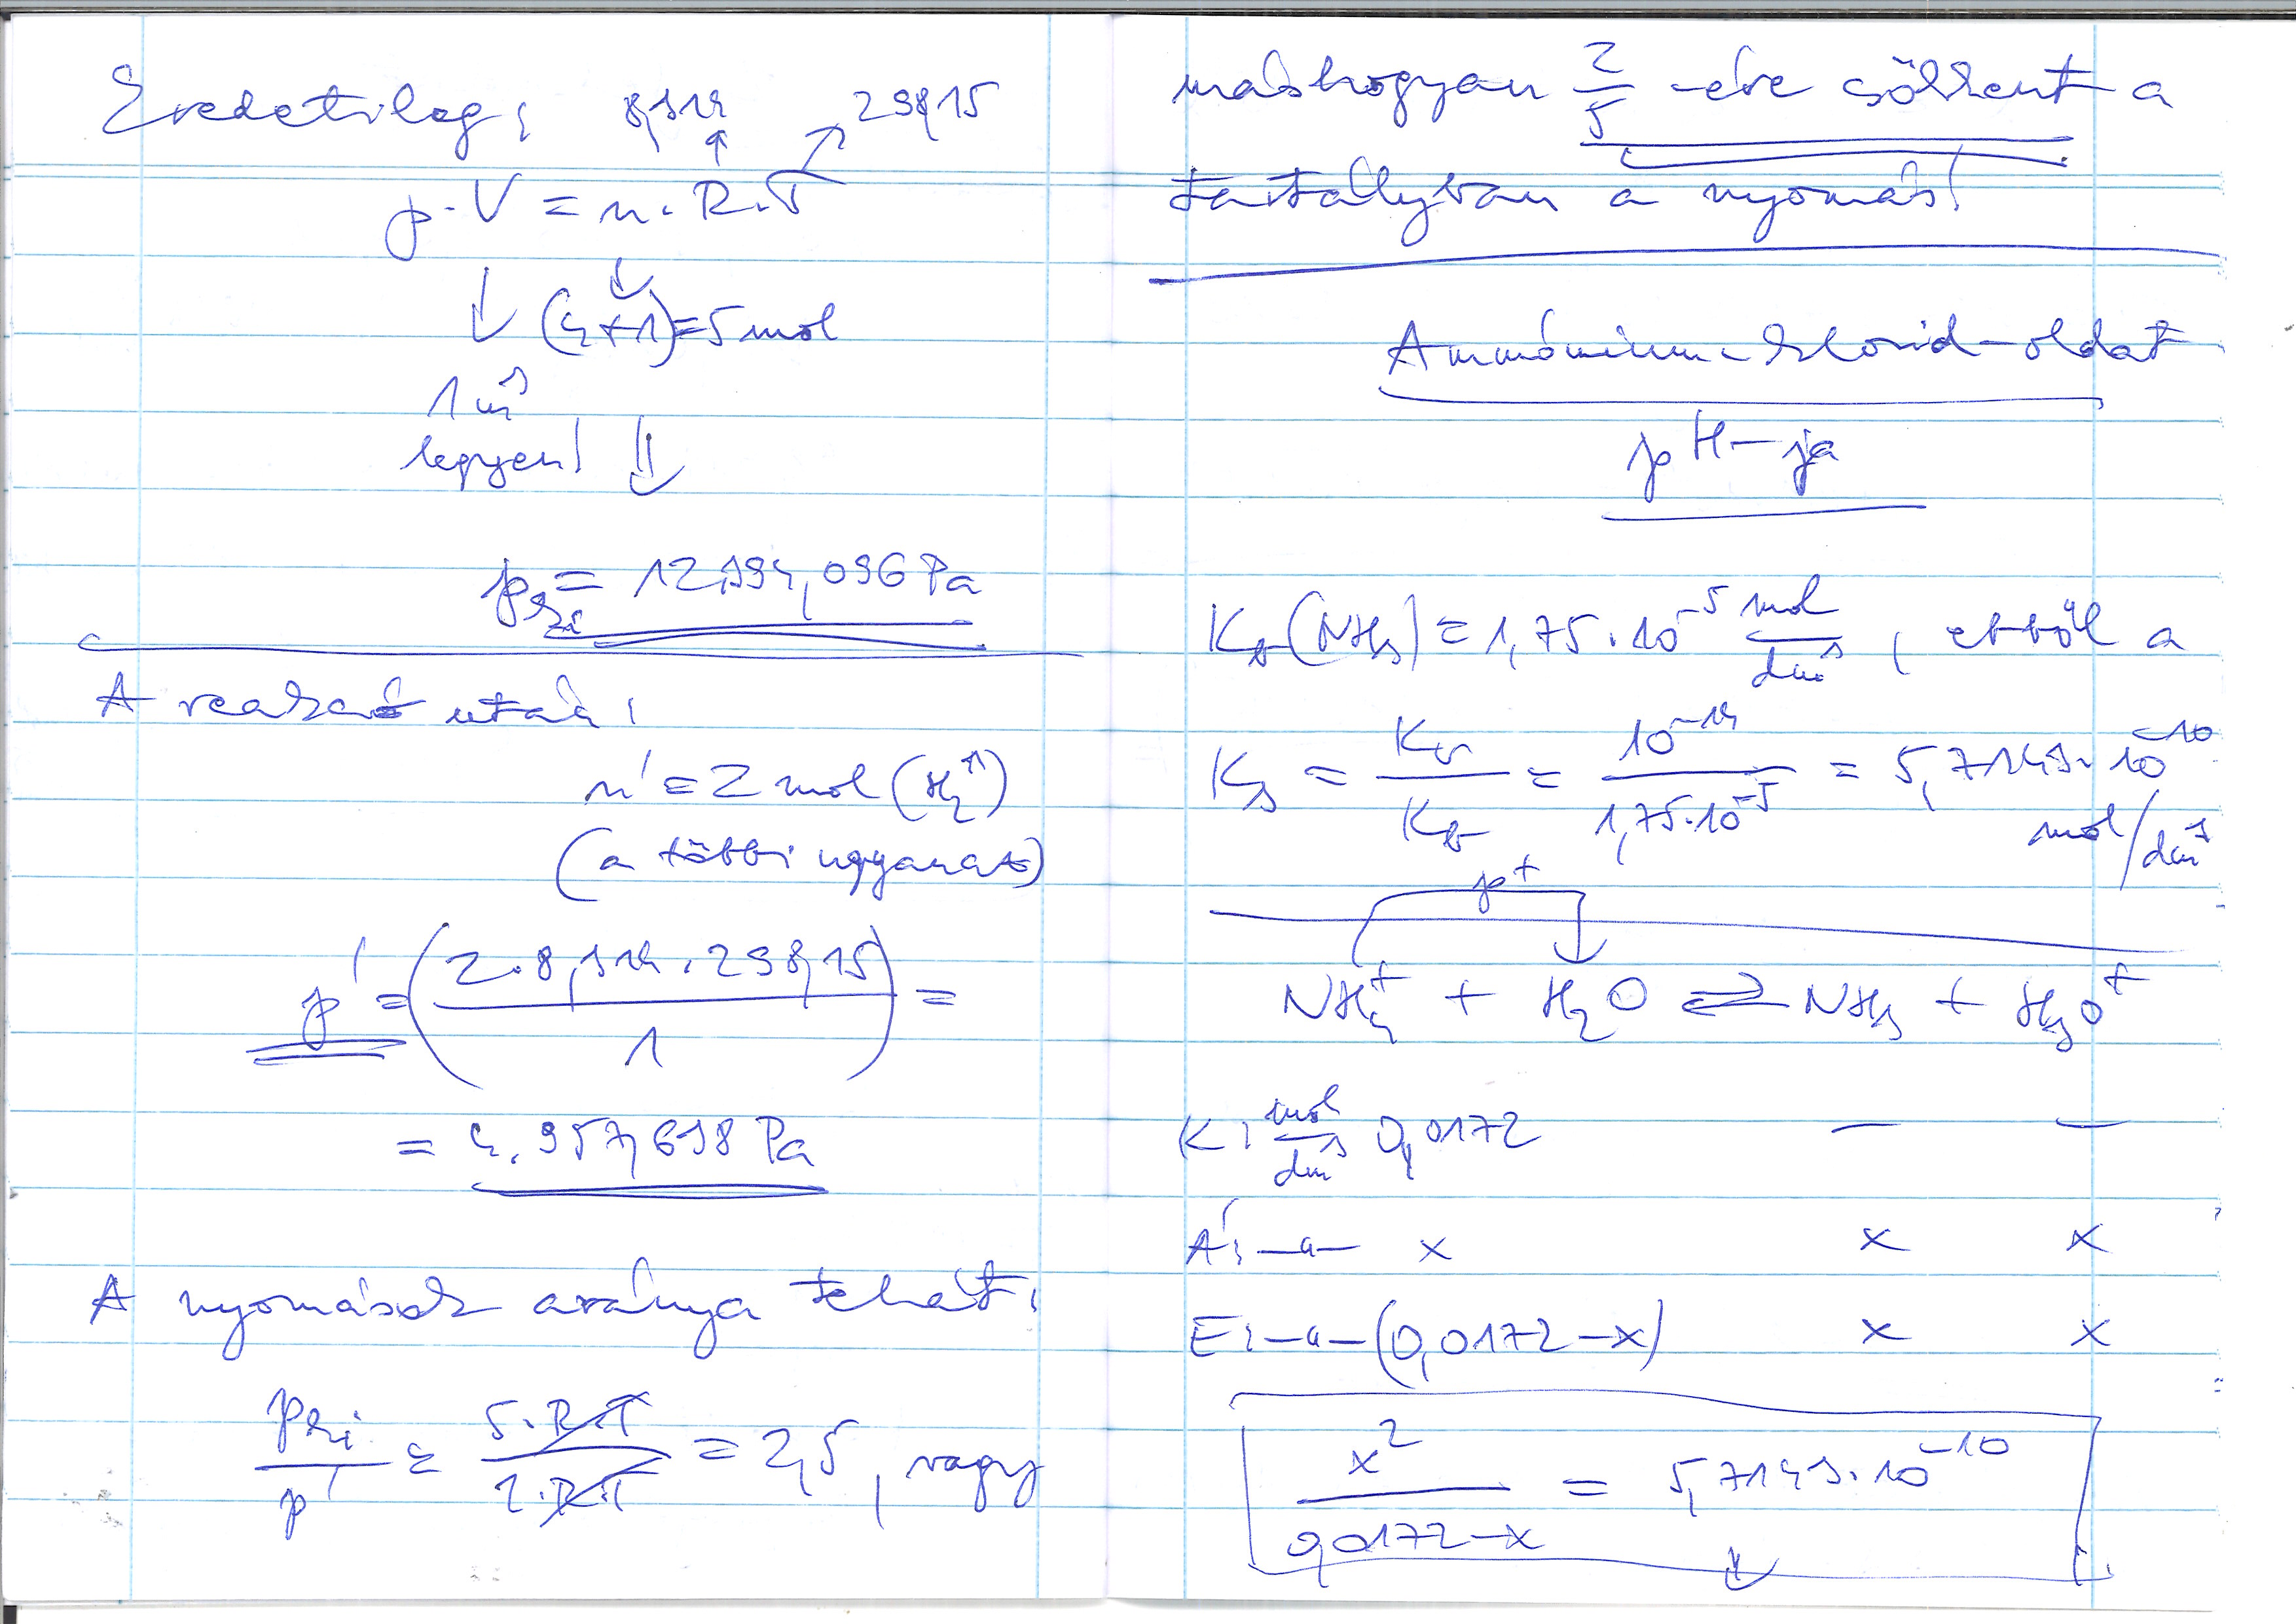 Eredetileg: 8,314 298,15
p·V = n·R·T
(4+1)=5 mol
1 m³
legyen!
p_ki = 12.394,096 Pa
A reakció után:
n' = 2 mol (H₂↑)
(a többi ugyanaz)
p' = (2·8,314·298,15 / 1) =
= 4.957,638 Pa
A nyomások aránya tehát:
p_ki / p' = 5·R·T / 2·R·T = 2,5, vagy
máshogyan 2/5 -ére csökkent a
tartályban a nyomás!
Ammónium-klorid-oldat
pH-ja
K_b(NH₃) = 1,75·10⁻⁵ mol/dm³, ebből a
K_s = K_v / K_b = 10⁻¹⁴ / 1,75·10⁻⁵ = 5,7143·10⁻¹⁰
mol/dm³
p⁺
NH₄⁺ + H₂O ⇌ NH₃ + H₃O⁺
K: mol/dm³ 0,0172 — —
Á: —"— x x x
E: —"— (0,0172-x) x x
x² / 0,0172-x = 5,7143·10⁻¹⁰